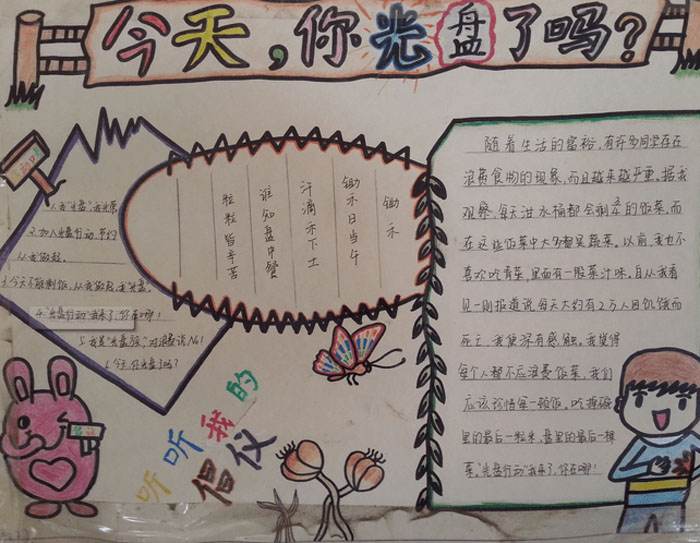 今天,你光盘了吗?
口号
1.我"光盘",我光荣
2.加入光盘行动,节约
从我做起。
3.今天不做剩饭,从我做起,我光盘。
4."光盘行动"我来了,你在哪!
5.我是"光盘族",对浪费说No!
6.今天,你光盘了吗?
锄禾
锄禾日当午
汗滴禾下土
谁知盘中餐
粒粒皆辛苦
听听我的
倡仪
随着生活的富裕,有许多同学存在
浪费食物的现象,而且越来越严重,据我
观察,每天泔水桶都会剩的饭菜,而
在这些饭菜中大多都是蔬菜。以前,我也不
喜欢吃青菜,里面有一股菜汁味。自从我看
见一则报道说每天大约有2万人因饥饿而
死亡,我便深有感触。我觉得
每个人都不应浪费饭菜,我们
应该珍惜每一顿饭。吃掉碗
里的最后一粒米,盘里的最后一棵
菜。"光盘行动"我来了,你在哪!